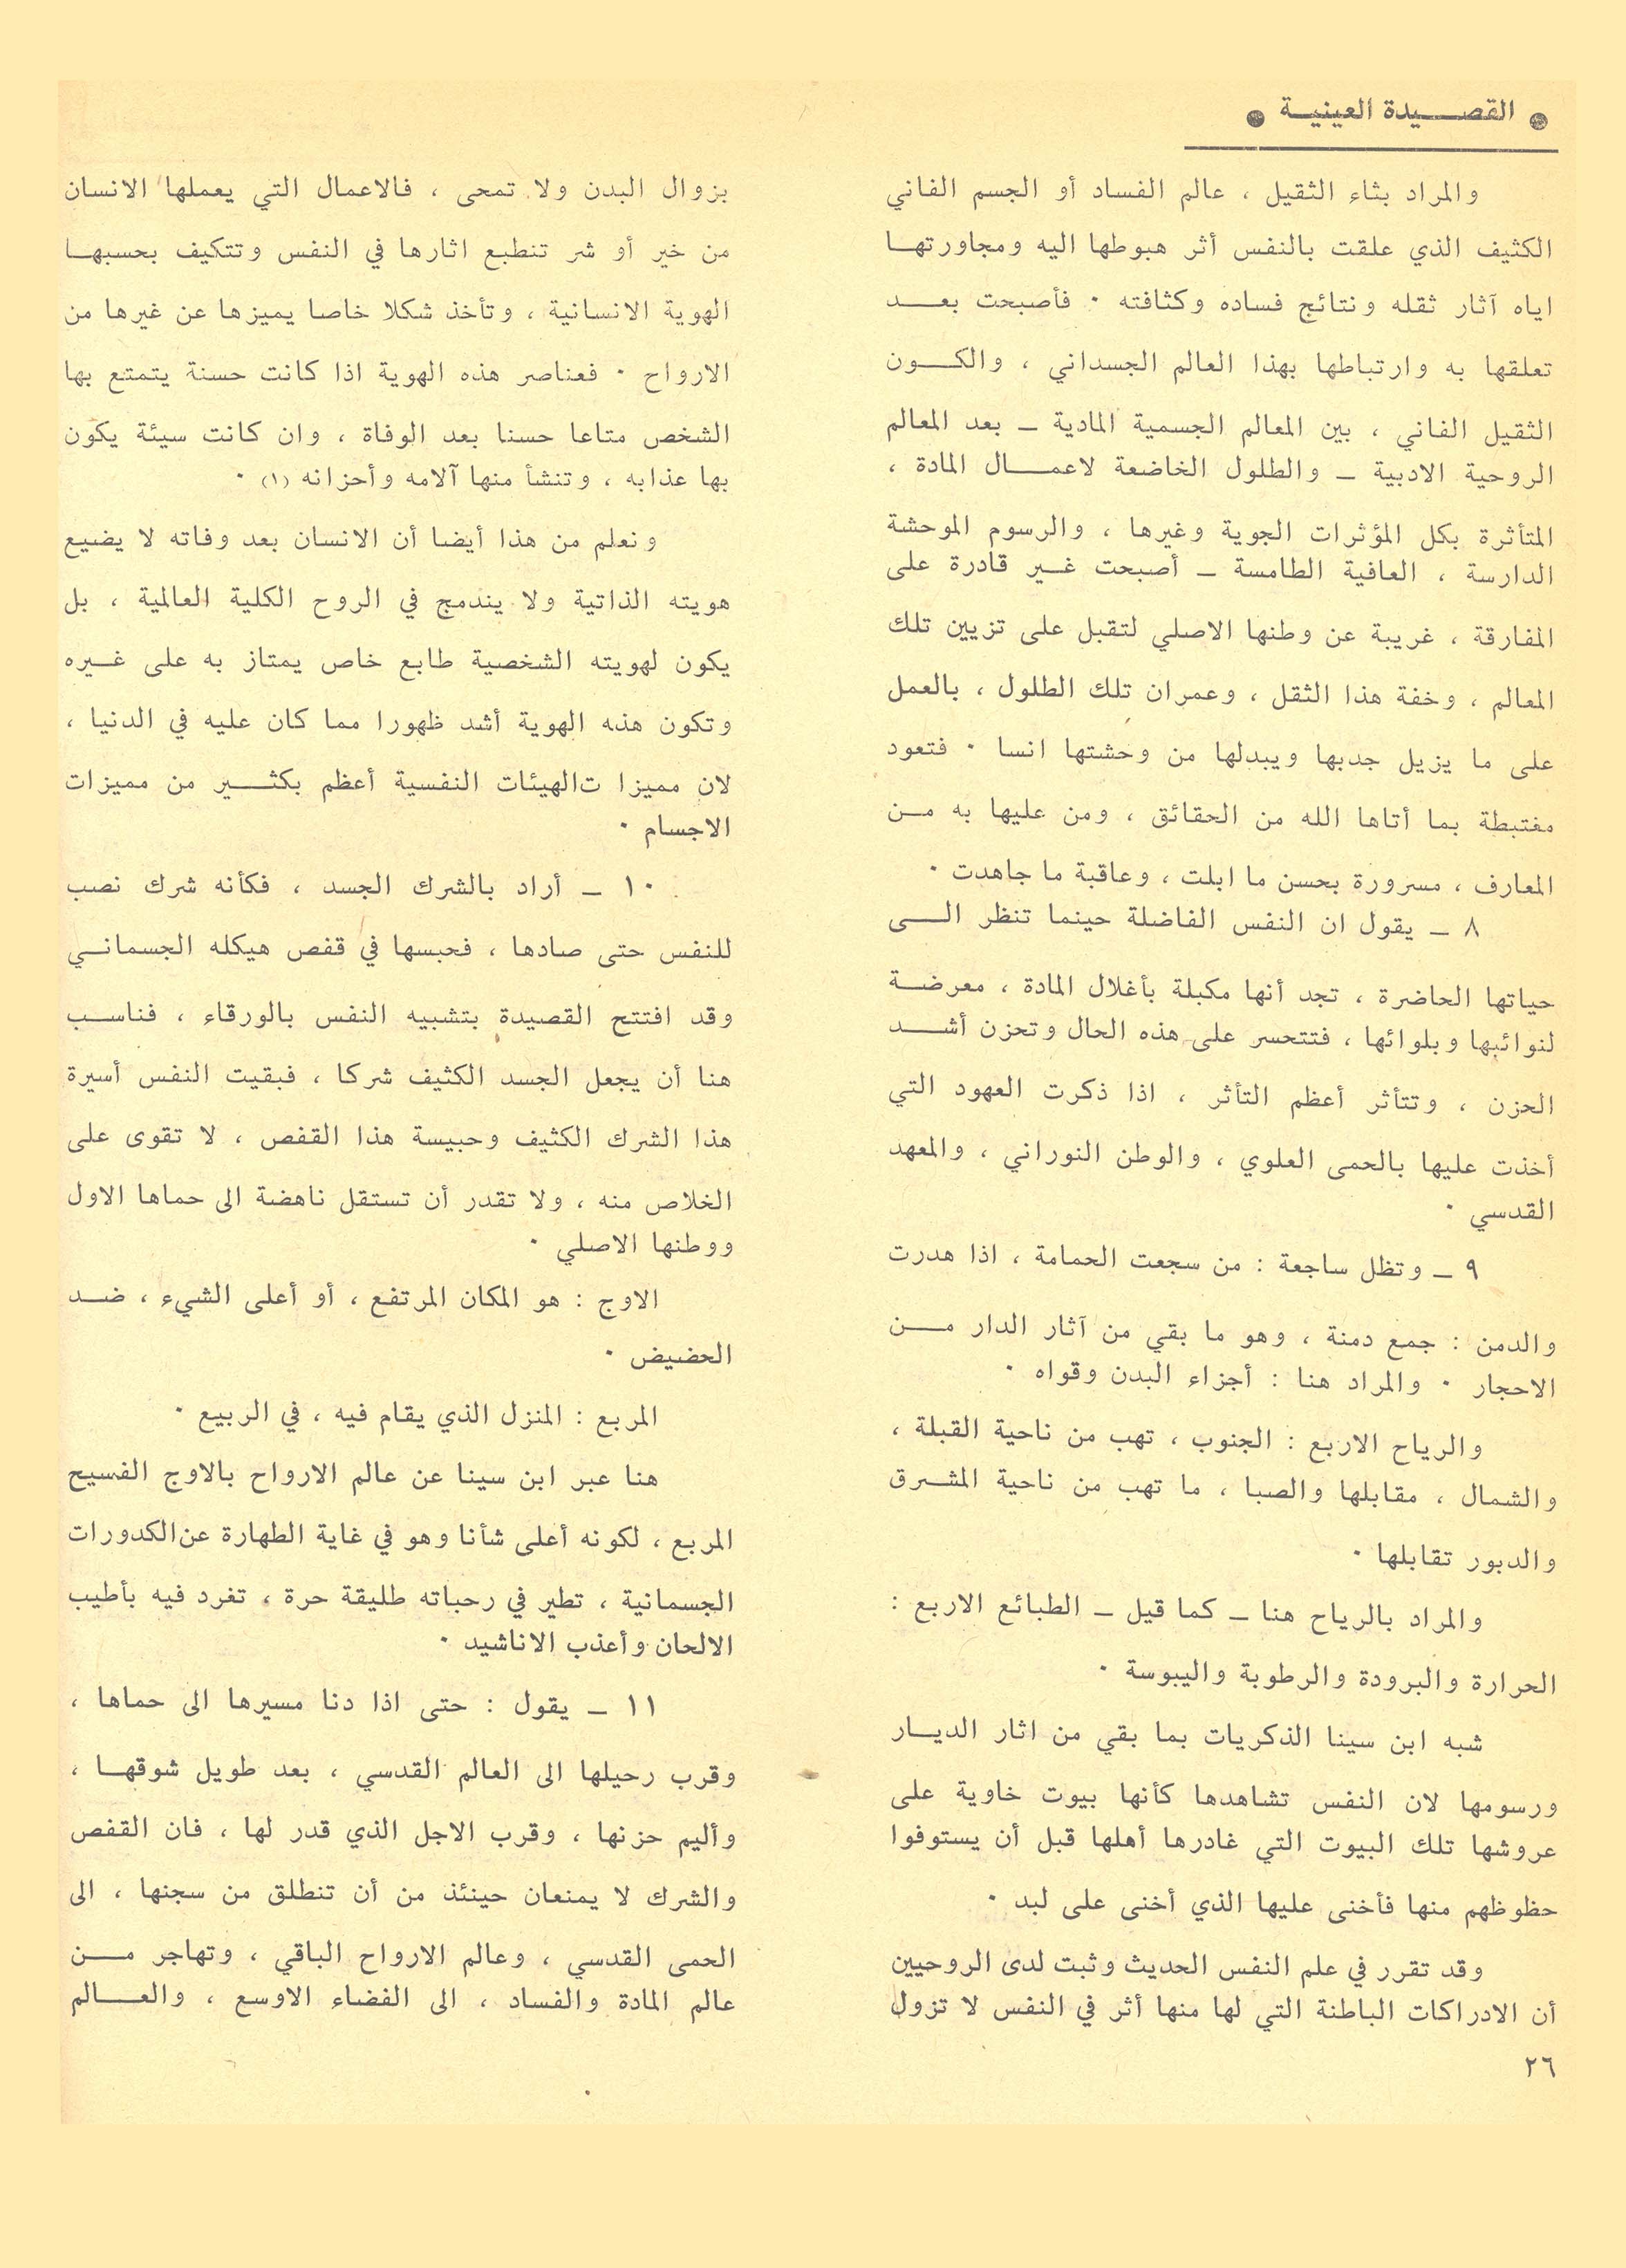 ● القصيدة العينية ●
والمراد بثاء الثقيل ، عالم الفساد أو الجسم الفاني
الكثيف الذي علقت بالنفس أثر هبوطها اليه ومجاورتها
اياه آثار ثقله ونتائج فساده وكثافته ٠ فأصبحت بعد
تعلقها به وارتباطها بهذا العالم الجسداني ، والكون
الثقيل الفاني ، بين المعالم الجسمية المادية ـ بعد المعالم
الروحية الادبية ـ والطلول الخاضعة لاعمال المادة ،
المتأثرة بكل المؤثرات الجوية وغيرها ، والرسوم الموحشة
الدارسة ، العافية الطامسة ـ أصبحت غير قادرة على
المفارقة ، غريبة عن وطنها الاصلي لتقبل على تزيين تلك
المعالم ، وخفة هذا الثقل ، وعمران تلك الطلول ، بالعمل
على ما يزيل جدبها ويبدلها من وحشتها انسا ٠ فتعود
مغتبطة بما أتاها الله من الحقائق ، ومن عليها به من
المعارف ، مسرورة بحسن ما ابلت ، وعاقبة ما جاهدت ٠
٨ ـ يقول ان النفس الفاضلة حينما تنظر الى
حياتها الحاضرة ، تجد أنها مكبلة بأغلال المادة ، معرضة
لنوائبها وبلوائها ، فتتحسر على هذه الحال وتحزن أشد
الحزن ، وتتأثر أعظم التأثر ، اذا ذكرت العهود التي
أخذت عليها بالحمى العلوي ، والوطن النوراني ، والمعهد
القدسي ٠
٩ ـ وتظل ساجعة : من سجعت الحمامة ، اذا هدرت
والدمن : جمع دمنة ، وهو ما بقي من آثار الدار من
الاحجار ٠ والمراد هنا : أجزاء البدن وقواه ٠
والرياح الاربع : الجنوب ، تهب من ناحية القبلة ،
والشمال ، مقابلها والصبا ، ما تهب من ناحية المشرق
والدبور تقابلها ٠
والمراد بالرياح هنا ـ كما قيل ـ الطبائع الاربع :
الحرارة والبرودة والرطوبة واليبوسة ٠
شبه ابن سينا الذكريات بما بقي من اثار الديار
ورسومها لان النفس تشاهدها كأنها بيوت خاوية على
عروشها تلك البيوت التي غادرها أهلها قبل أن يستوفوا
حظوظهم منها فأخنى عليها الذي أخنى على لبد ٠
وقد تقرر في علم النفس الحديث وثبت لدى الروحيين
أن الادراكات الباطنة التي لها منها أثر في النفس لا تزول
بزوال البدن ولا تمحى ، فالاعمال التي يعملها الانسان
من خير أو شر تنطبع اثارها في النفس وتتكيف بحسبها
الهوية الانسانية ، وتأخذ شكلا خاصا يميزها عن غيرها من
الارواح ٠ فعناصر هذه الهوية اذا كانت حسنة يتمتع بها
الشخص متاعا حسنا بعد الوفاة ، وان كانت سيئة يكون
بها عذابه ، وتنشأ منها آلامه وأحزانه (١) ٠
ونعلم من هذا أيضا أن الانسان بعد وفاته لا يضيع
هويته الذاتية ولا يندمج في الروح الكلية العالمية ، بل
يكون لهويته الشخصية طابع خاص يمتاز به على غيره
وتكون هذه الهوية أشد ظهورا مما كان عليه في الدنيا ،
لان مميزا ت‌الهيئات النفسية أعظم بكثير من مميزات
الاجسام ٠
١٠ ـ أراد بالشرك الجسد ، فكأنه شرك نصب
للنفس حتى صادها ، فحبسها في قفص هيكله الجسماني
وقد افتتح القصيدة بتشبيه النفس بالورقاء ، فناسب
هنا أن يجعل الجسد الكثيف شركا ، فبقيت النفس أسيرة
هذا الشرك الكثيف وحبيسة هذا القفص ، لا تقوى على
الخلاص منه ، ولا تقدر أن تستقل ناهضة الى حماها الاول
ووطنها الاصلي ٠
الاوج : هو المكان المرتفع ، أو أعلى الشيء ، ضد
الحضيض ٠
المربع : المنزل الذي يقام فيه ، في الربيع ٠
هنا عبر ابن سينا عن عالم الارواح بالاوج الفسيح
المربع ، لكونه أعلى شأنا وهو في غاية الطهارة عن الكدورات
الجسمانية ، تطير في رحباته طليقة حرة ، تغرد فيه بأطيب
الالحان وأعذب الاناشيد ٠
١١ ـ يقول : حتى اذا دنا مسيرها الى حماها ،
وقرب رحيلها الى العالم القدسي ، بعد طويل شوقها ،
وأليم حزنها ، وقرب الاجل الذي قدر لها ، فان القفص
والشرك لا يمنعان حينئذ من أن تنطلق من سجنها ، الى
الحمى القدسي ، وعالم الارواح الباقي ، وتهاجر من
عالم المادة والفساد ، الى الفضاء الاوسع ، والعالم
٢٦